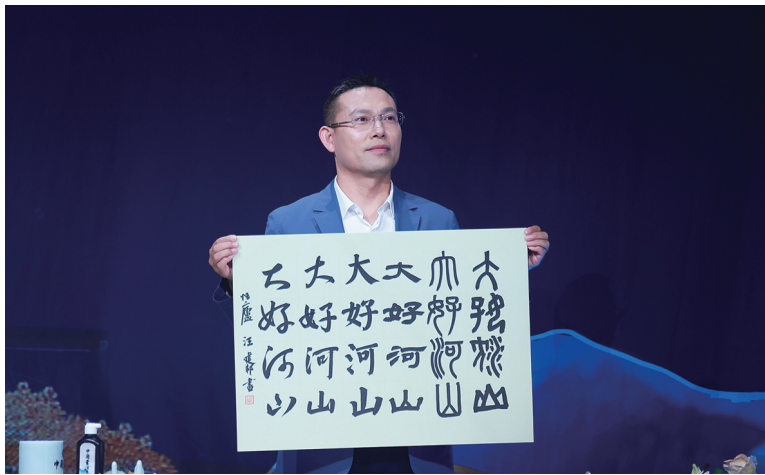 大好河山
大好河山
大好河山
大好河山
大好河山
大好河山
廬 汪建 書